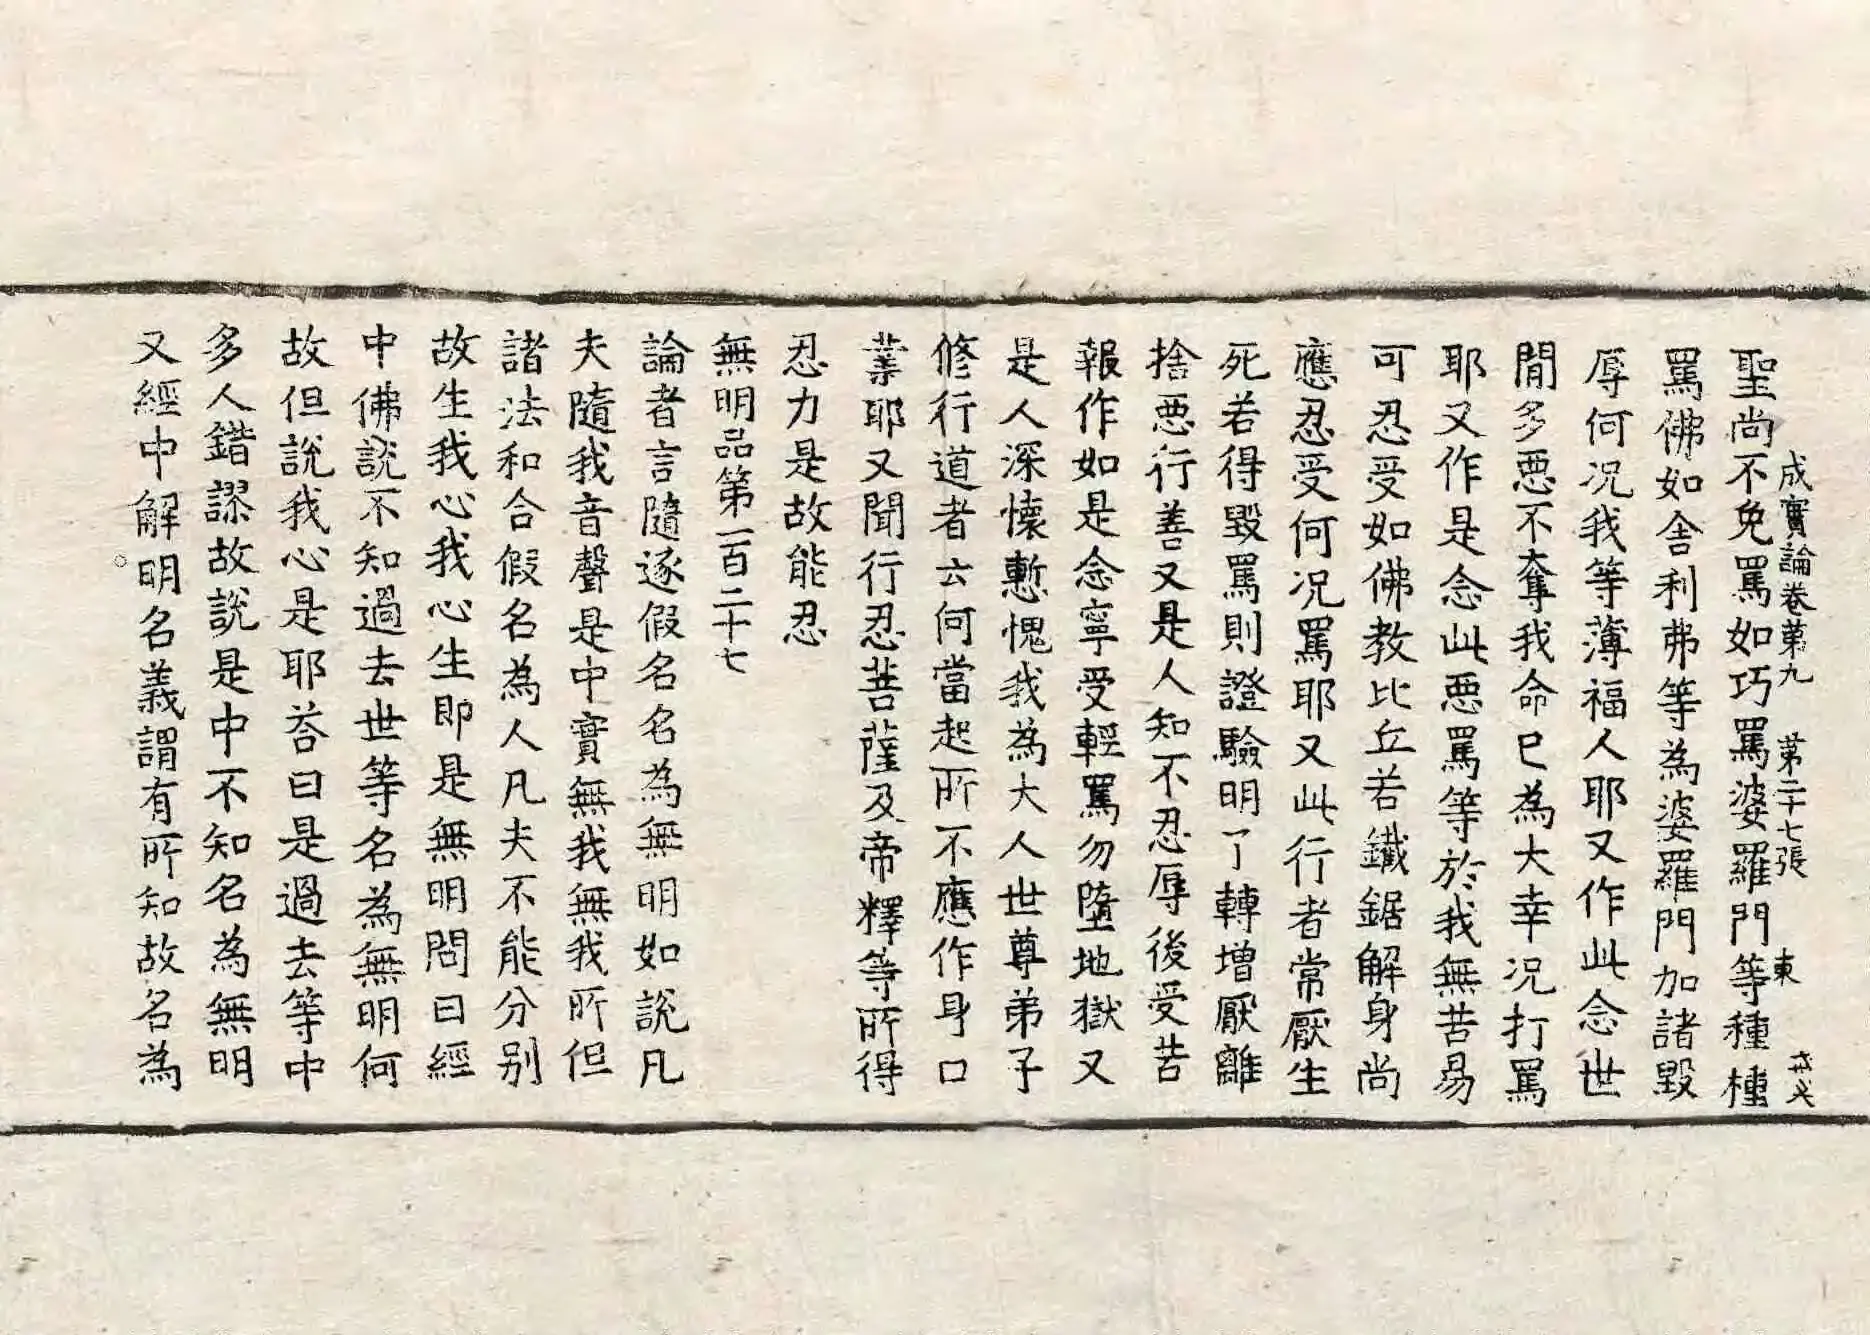 成實論卷第九 第二十七張 東
聖尚不免罵如巧罵婆羅門等種種
罵佛如舍利弗等為婆羅門加諸毀
辱何況我等薄福人耶又作此念世
閒多惡不奪我命已為大幸況打罵
耶又作是念此惡罵等於我無苦易
可忍受如佛教比丘若鐵鋸解身尚
應忍受何況罵耶又此行者常厭生
死若得毀罵則證驗明了轉增厭離
捨惡行善又是人知不忍辱後受苦
報作如是念寧受輕罵勿墮地獄又
是人深懷慙愧我為大人世尊弟子
修行道者云何當起所不應作身口
業耶又聞行忍菩薩及帝釋等所得
忍力是故能忍
無明品第一百二十七
論者言隨逐假名名為無明如說凡
夫隨我音聲是中實無我無我所但
諸法和合假名為人凡夫不能分別
故生我心我心生即是無明問曰經
中佛說不知過去世等名為無明何
故但說我心是耶荅曰是過去等中
多人錯謬故說是中不知名為無明
又經中解明名義謂有所知故名為